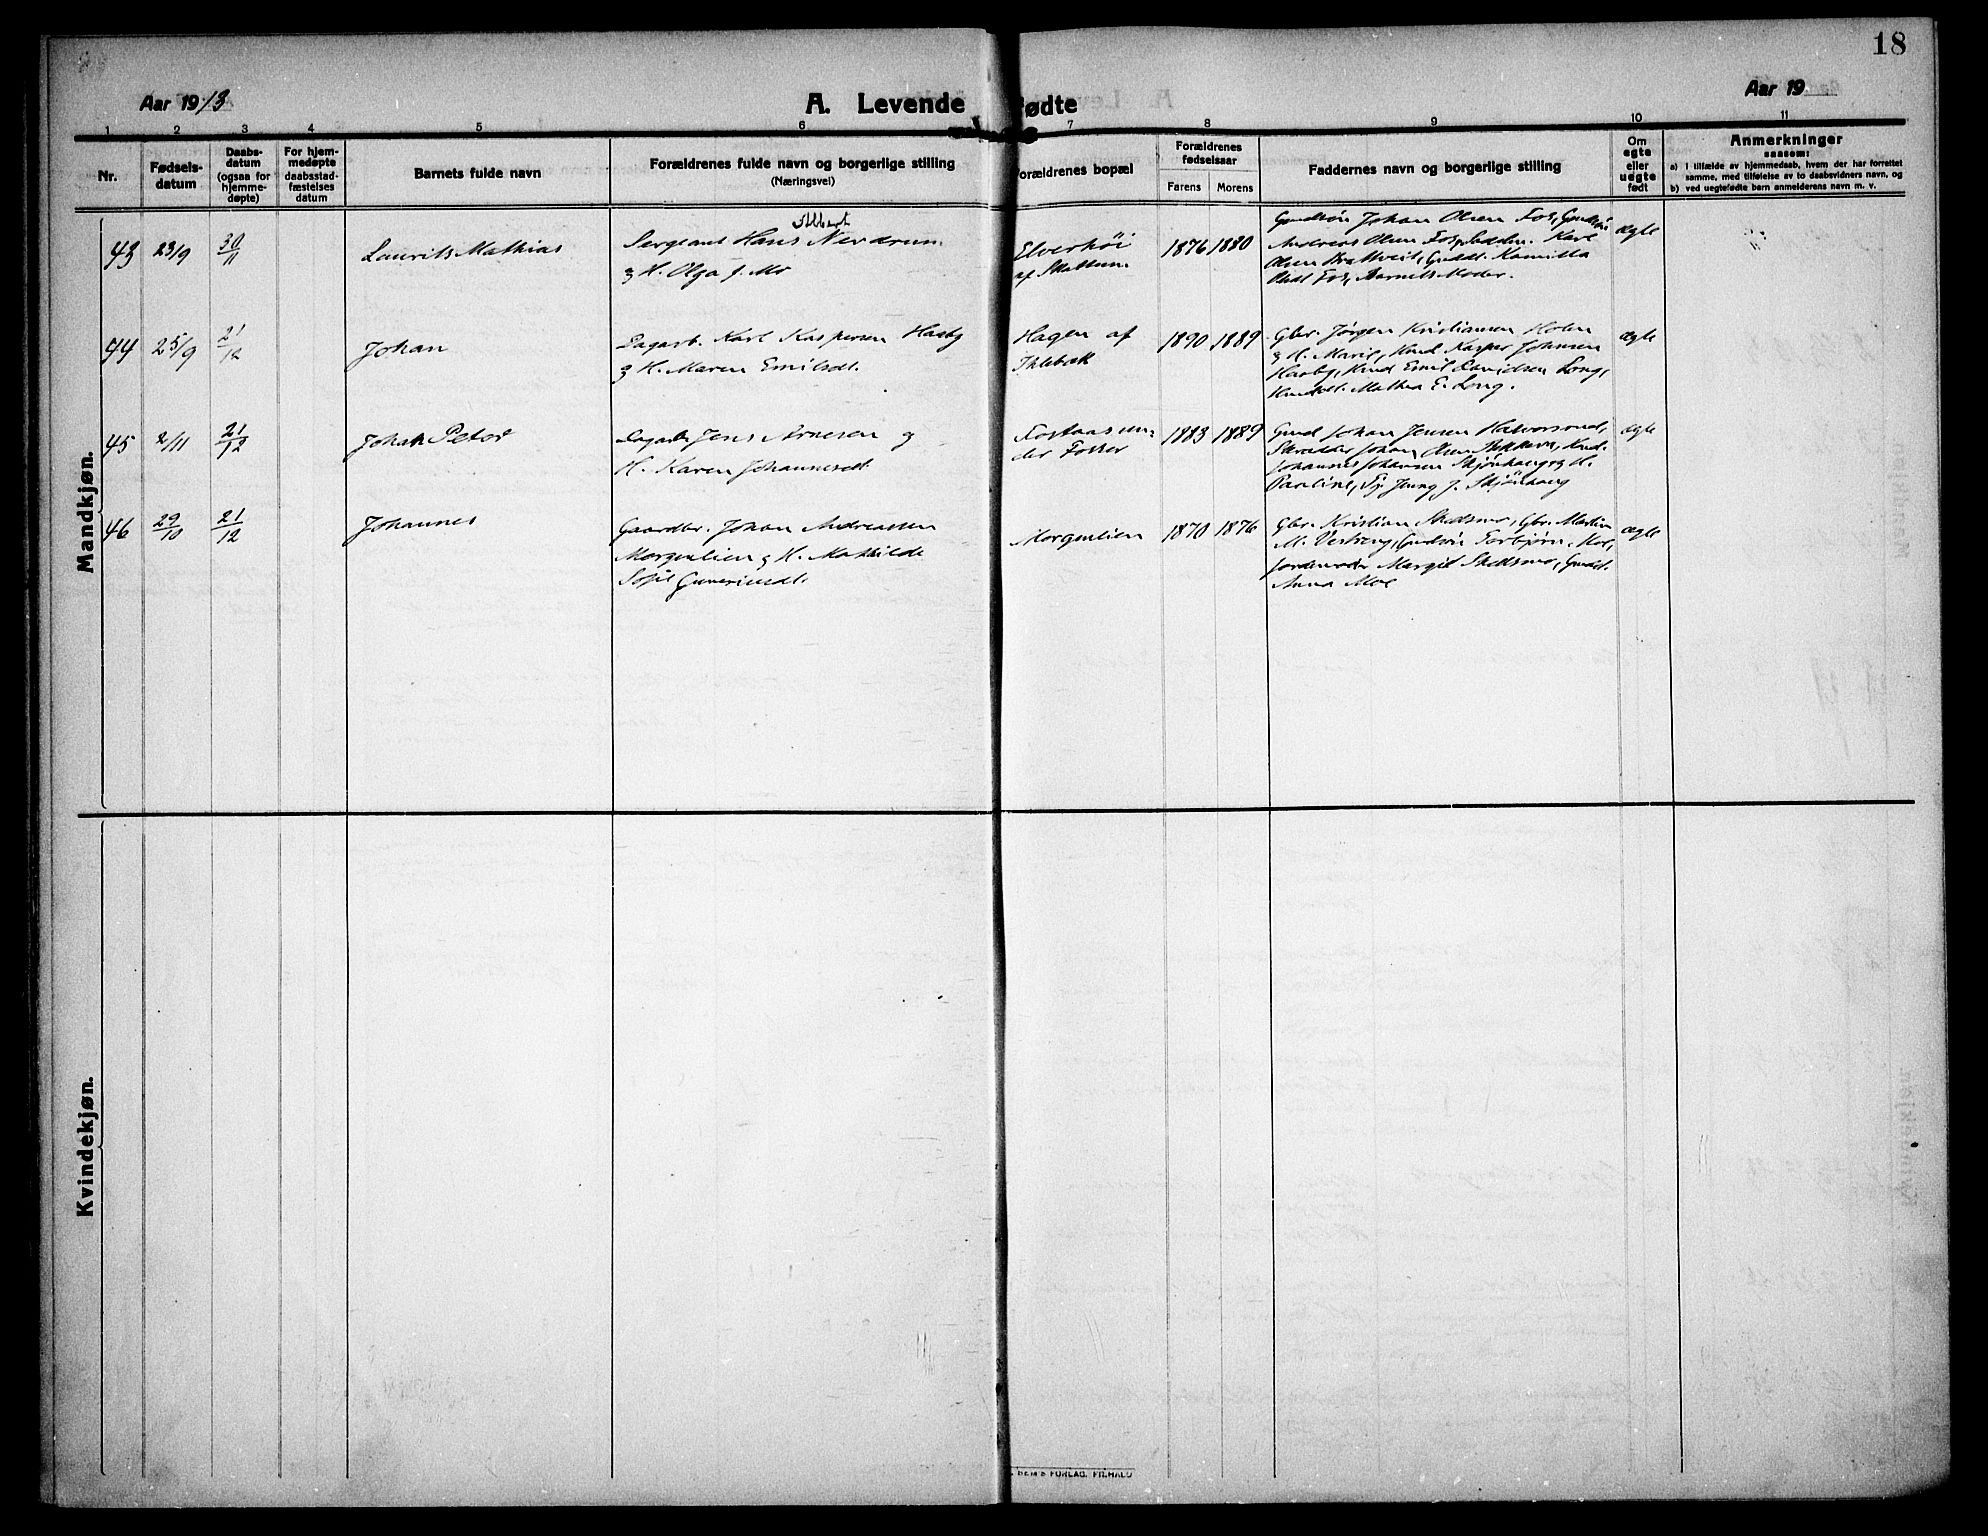 18
Aar 1913
A. Levende Fødte
Aar 19
1 2 3 4 5 6 7 8 9 10 11
Nr.
Fødsels-
datum
Daabs-
datum
(ogsaa for
hjemme-
døpte)
For hjem-
medøpte
daabsstad-
fæstelses
datum
Barnets fulde navn
Forældrenes fulde navn og borgerlige stilling
(Næringsvei)
Forældrenes bopæl
Forældrenes
fødselsaar
Farens Morens
Faddernes navn og borgerlige stilling
Om
egte
eller
uegte
født
Anmerkninger
saasom:
a) i tilfælde av hjemmedaab, hvem der har forrettet
samme, med tilføielse av to daabsvidners navn, og
b) ved uegtefødte barn anmelderens navn m. v.
Mandkjøn.
43 23/9 30/11
Laurits Mathias
Albert
Sergeant Hans Nerdrum
& H. Olga f. Mo
Elverhöi
af Skattum
1876 1880
Gmdsön Johan Olsen Fos, Gmdsön
Andreas Olsen Fos, Karl
Olsen Kamilla
Olsdt. Fos, Barnets Moder.
ægte
44 25/9 21/12
Johan
Dagarb. Karl Kaspersen Haaby
& H. Maren Emilsdt.
Hagen af
Ihlebæk
1890 1889
Gbr. Jørgen Kristiansen Holen
& H. Marie, Kmd. Kaspar Johnsen
Haaby, Kmd Emil Davidsen Long,
Mathea E. Long.
ægte
45 2/11 21/12
Johan Peter
Dagarb. Jens Arnesen og
H. Karen Johannesdt.
Fostaasun-
der Fosser
1883 1889
Gmd Johan Jensen Halvorsrud,
Skrædder Johan Olsen Kmd.
Johannes Johansen Skjönhaug & H.
Pauline, Pg. Jenny J. Skjönhaug
ægte
46 29/10 21/12
Johannes
Gaardbr. Johan Andreassen
Morgenlien & H. Mathilde
Sofie
Morgenlien
1870 1876
Gbr. Kristian Skedsmo, Gbr. Martin
M. Vestreng, Gmdsön Torbjørn Moe,
Jordemoder Margit Skedsmo, Gmdt.
Anna Moe
ægte
Kvindekjøn.